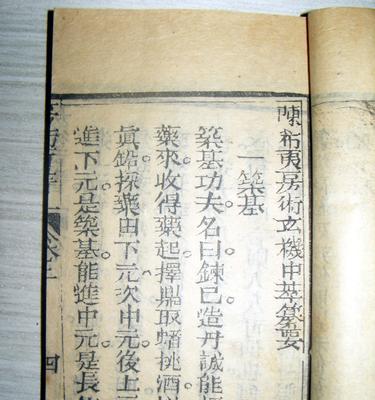 陳希夷房術玄機中萃纂要
一築基
築基功夫名曰鍊己造丹誠能
藥來收得藥起擇鼎取蟠桃酒
眞鉛採藥由下元次中元後上
進下元是築基能進中元是長
四